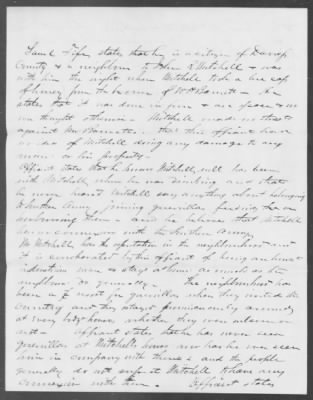 Saml Fifer states that he is a citizen of Daviess
County & a neighbor of John S Mitchell & was
with him the night when Mitchell took a bee cap
of honey from the farm of W H Barnett - he
states that it was done in fun & as a joke & no
one thought otherwise - Mitchell made no threats
against Mr Barnett - that this affiant knows
no idea of Mitchell doing any damage to any
man or his property -
Affiant states that he knows Mitchell well has been
with Mitchell when he was drinking and that
he never heard Mitchell say anything about belonging
to Southern Army joining guerrillas feeding them or
embracing them - and he believes that Mitchell
has no connexion with the Southern Army
Mr Mitchell has the reputation in the neighborhood and
it is corroborated by this affiant of being an honest
industrious man & stays at home as much as his
neighbors do generally. The neighborhood has
been a resort for guerrillas when they visited the
country and they stayed promiscuously around
at every body's house whether they were interior or
not - affiant states that he has never seen
guerrillas at Mitchells house nor has he ever seen
him in company with them & and the people
generally do not suspect Mitchell to have any
connexion with them. Affiant states